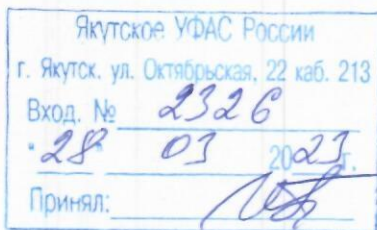 Якутское УФАС России
г. Якутск. ул. Октябрьская, 22 каб. 213
Вход. № 2326
"28" 03 2023г.
Принял: